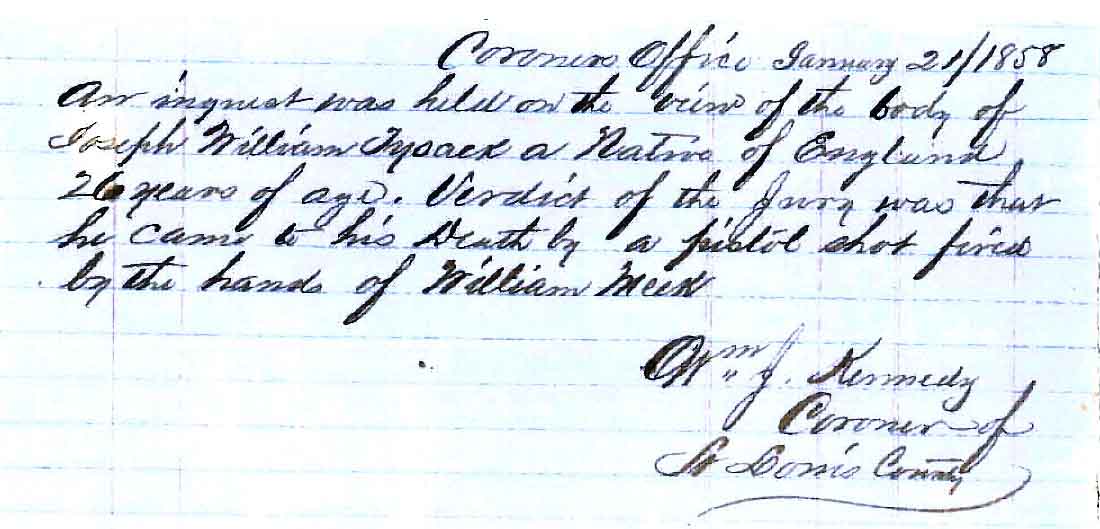 Coroners Office January 21/1858
An inquest was held on the view of the body of
Joseph William Tysack a Native of England
26 years of age. Verdict of the Jury was that
he came to his Death by a pistol shot fired
by the hands of William Meek
Wm J. Kennedy
Coroner of
St Louis County